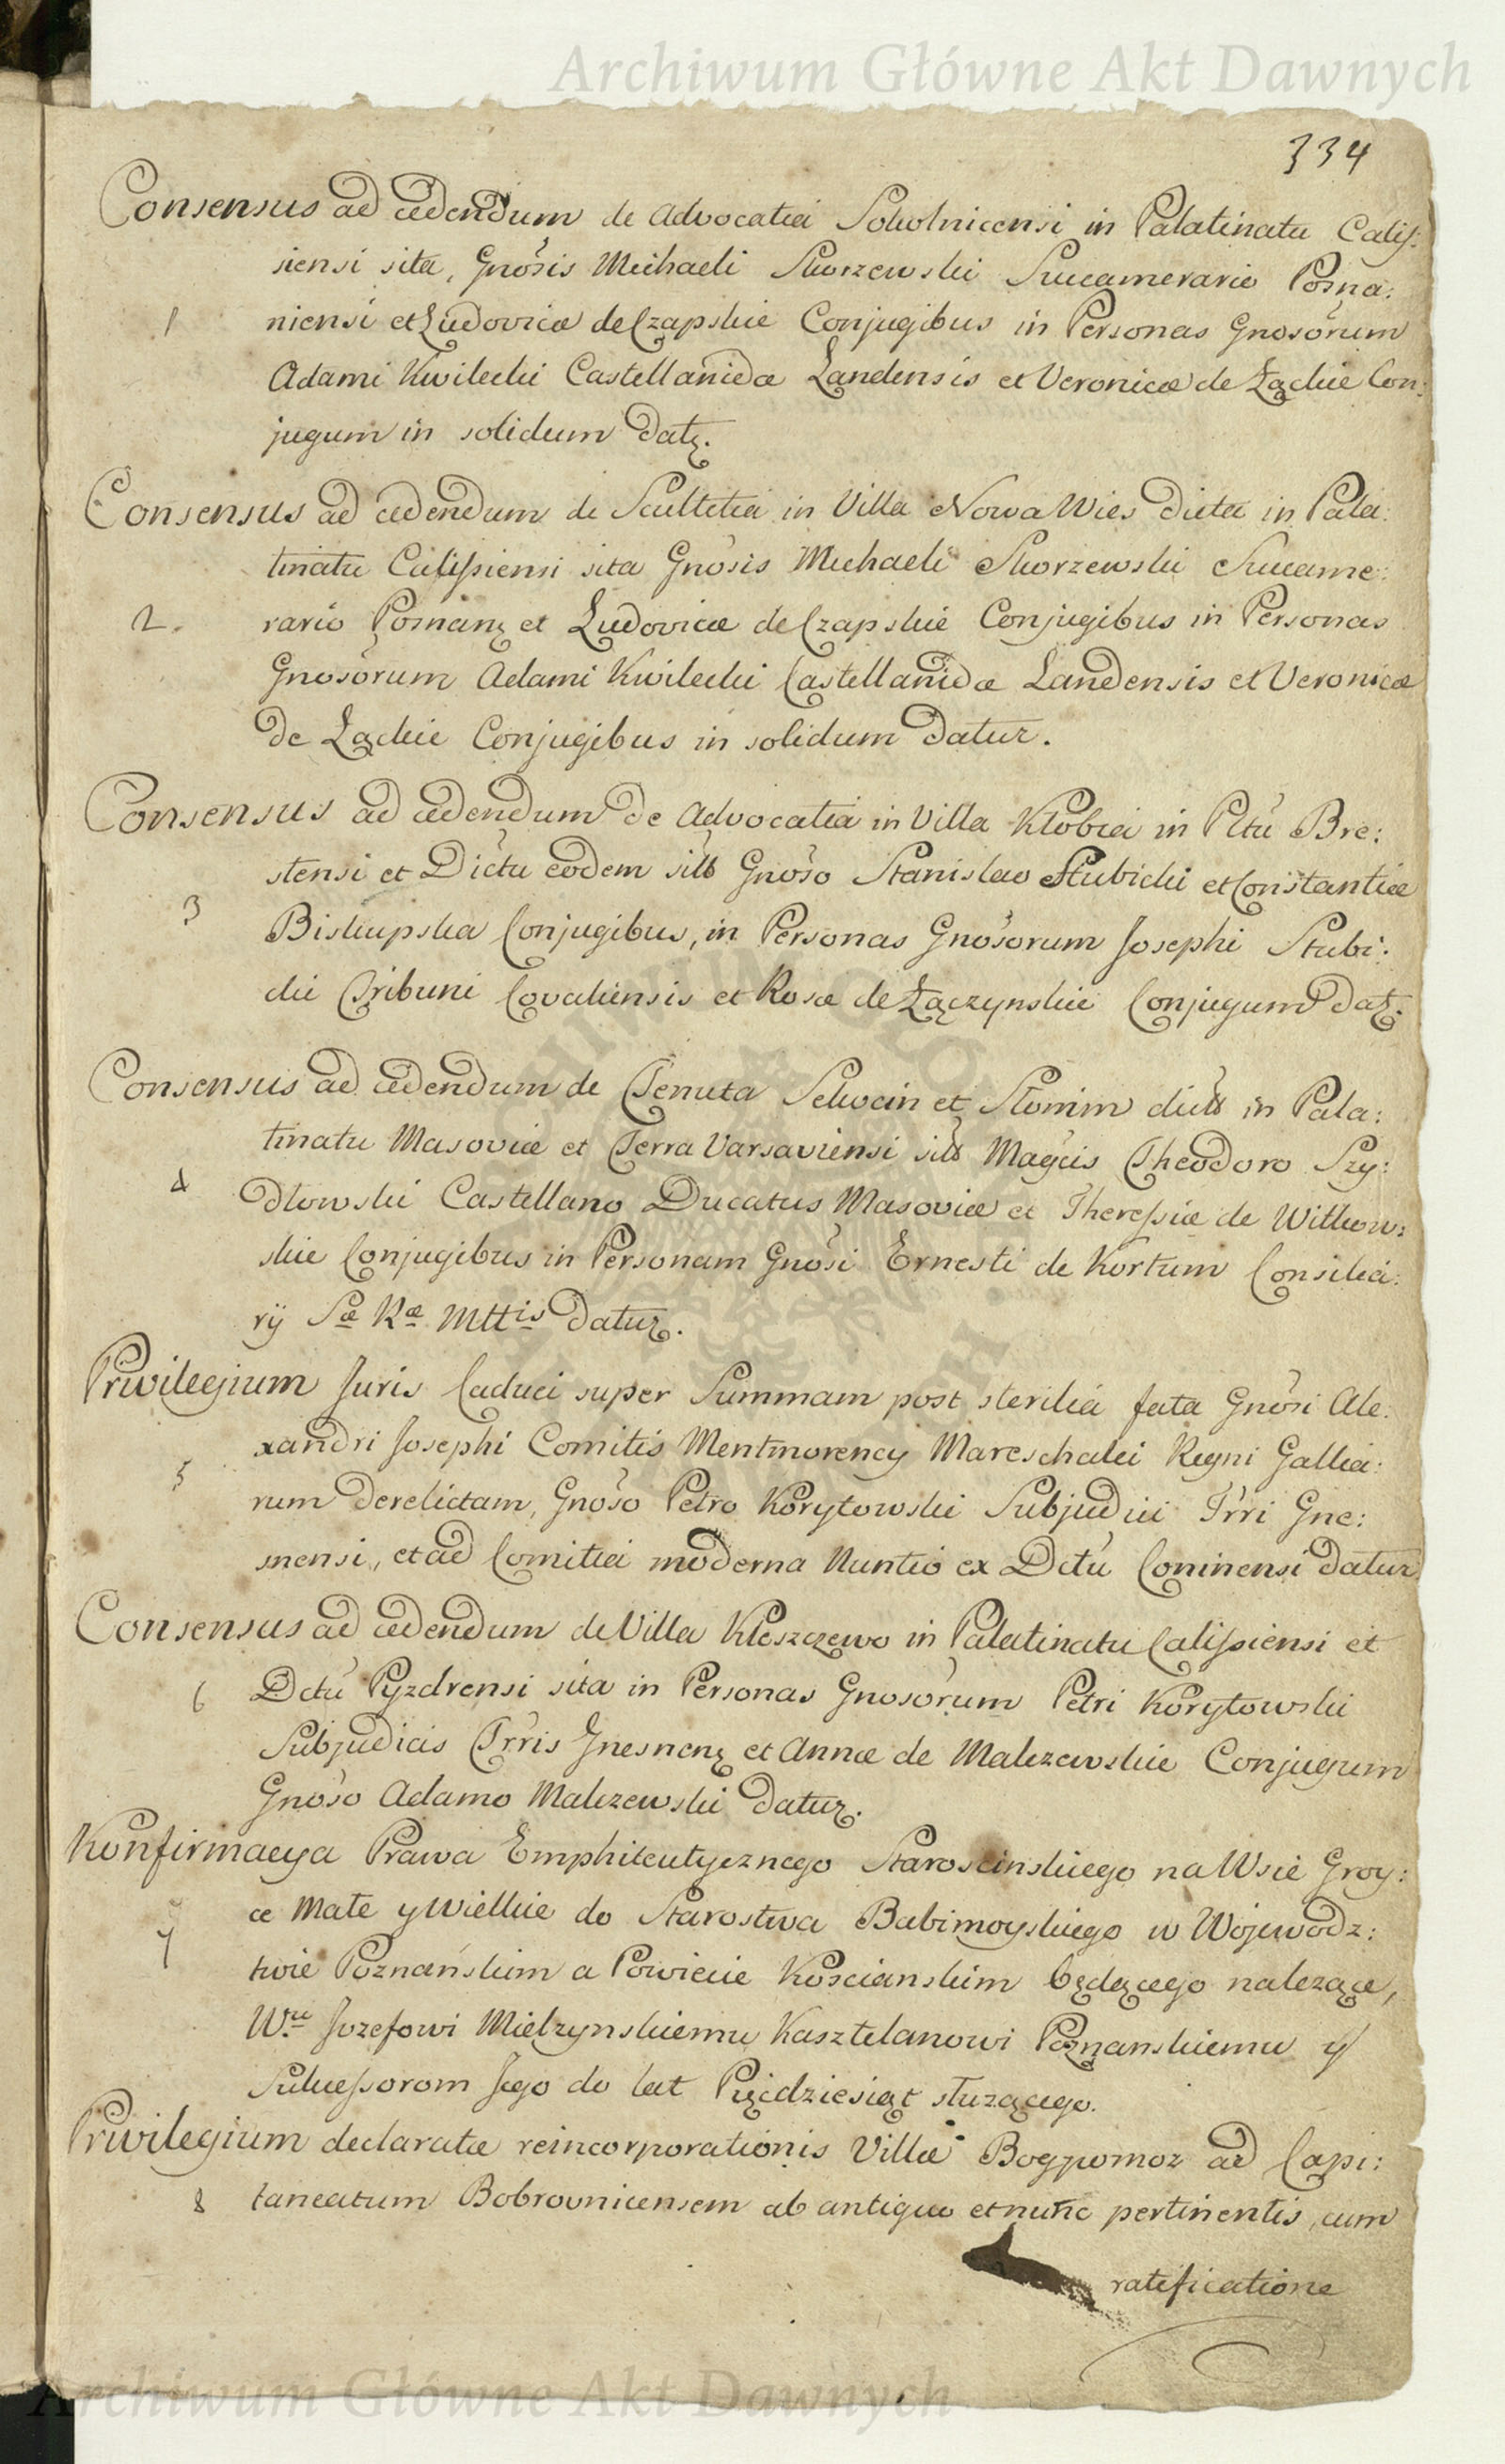 Archiwum Główne Akt Dawnych
334
Consensus ad cedendum de Advocatia Sokolnicensi in Palatinatu Calis:
siensi sita, Gnosis Michaeli Skorzewski Succamerario Posna:
1 niensi et Ludovicæ de Czapskie Conjugibus in Personas Gnosorum
Adami Kwilecki Castellanidæ Landensis et Veronicæ de Łąckie Con:
jugum in solidum datz.
Consensus ad cedendum de Scultetia in Villa Nowa Wies dicta in Pala:
tinatu Calissiensi sita Gnosis Michaeli Skorzewski Succame:
2. rario Posnanz et Ludovicæ de Czapskie Conjugibus in Personas
Gnosorum Adami Kwilecki Castellanidæ Landensis et Veronicæ
de Łąckie Conjugibus in solidum datur.
Consensus ad cedendum de Advocatia in Villa Kłobia in Pltu Bre:
stensi et Dictu eodem sitt Gnoso Stanislao Słubicki et Constantiæ
3 Biskupska Conjugibus, in Personas Gnosorum Josephi Słubi:
cki Tribuni Covaliensis et Rosæ de Łączynskie Conjugum datz.
Consensus ad cedendum de Tenuta Sekocin et Słomin dictt in Pala:
tinatu Masoviæ et Terra Varsaviensi sitt Magcis Theodoro Szy:
4 dłowski Castellano Ducatus Masoviæ et Theressiæ de Witkow:
skie Conjugibus in Personam Gnosi Ernesti de Kortum Consilia:
rij Sæ Ræ Mttis datur.
Privilegium Juris Caduci super Summam post sterilia fata Gnosi Ale:
xandri Josephi Comitis Mentmorency Mareschalci Regni Gallia:
5 rum derelictam, Gnoso Petro Korytowski Subjudici Trri Gne:
snensi, et ad Comitia moderna Nuntio ex Dctu Coninensi datur
Consensus ad cedendum de Villa Kleszczewo in Palatinatu Calissiensi et
6 Dctu Pyzdrensi sita in Personas Gnosorum Petri Korytowski
Subjudicis Trris Gnesnenz et Annæ de Malczewskie Conjugum
Gnoso Adamo Malczewski datur.
Konfirmacya Prawa Emphiteutycznego Staroscinskiego na Wsie Groy:
ce Małe y Wielkie do Starostwa Babimoyskiego w Wojewodz:
7 twie Poznańskim a Powiecie Koscianskim będącego nalezące,
Wmu Jozefowi Mielzynskiemu Kasztelanowi Poznanskiemu y
Sukcessorom Jego do lat Pięćdziesiąt słuzącego.
Privilegium declaratæ reincorporationis Villæ Bogpomoz ad Capi:
8 taneatum Bobrovnicensem ab antiquo et nunc pertinentis, cum
ratificatione
Archiwum Główne Akt Dawnych